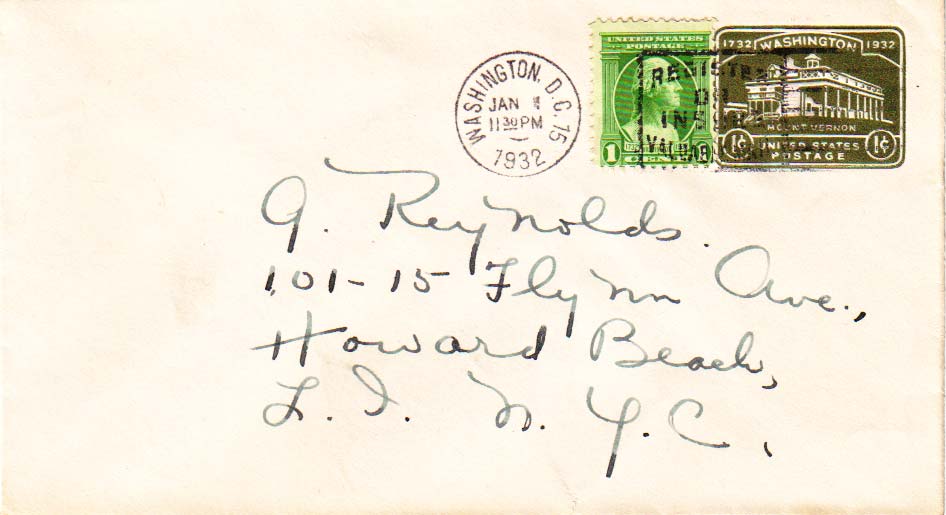 WASHINGTON, D.C. 15
JAN 1
11 30 PM
1932
UNITED STATES
POSTAGE
1
REGISTER
OR
INSURE
1732 WASHINGTON 1932
MOUNT VERNON
1¢ UNITED STATES 1¢
POSTAGE
G. Reynolds.
101-15 Flynn Ave.,
Howard Beach,
L. I. N. Y. C.,